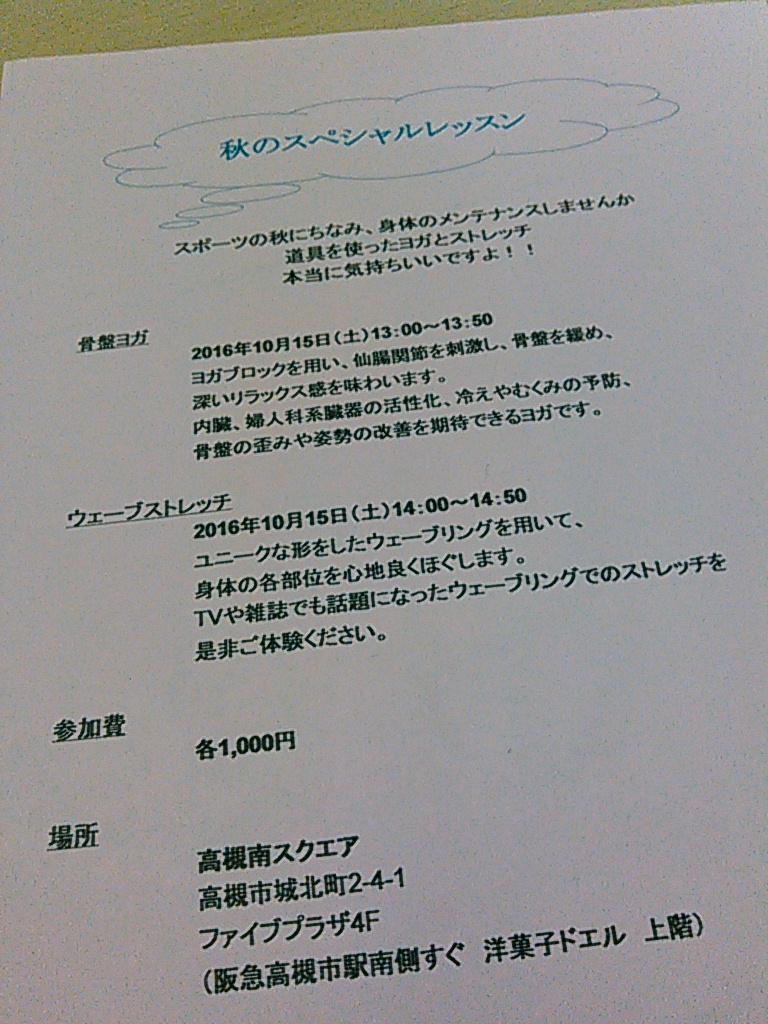 秋のスペシャルレッスン
スポーツの秋にちなみ、身体のメンテナンスしませんか
道具を使ったヨガとストレッチ
本当に気持ちいいですよ！！
骨盤ヨガ
2016年10月15日(土)13:00～13:50
ヨガブロックを用い、仙腸関節を刺激し、骨盤を緩め、
深いリラックス感を味わいます。
内臓、婦人科系臓器の活性化、冷えやむくみの予防、
骨盤の歪みや姿勢の改善を期待できるヨガです。
ウェーブストレッチ
2016年10月15日(土)14:00～14:50
ユニークな形をしたウェーブリングを用いて、
身体の各部位を心地良くほぐします。
TVや雑誌でも話題になったウェーブリングでのストレッチを
是非ご体験ください。
参加費
各1,000円
場所
高槻南スクエア
高槻市城北町2-4-1
ファイブプラザ4F
（阪急高槻市駅南側すぐ　洋菓子ドエル　上階）